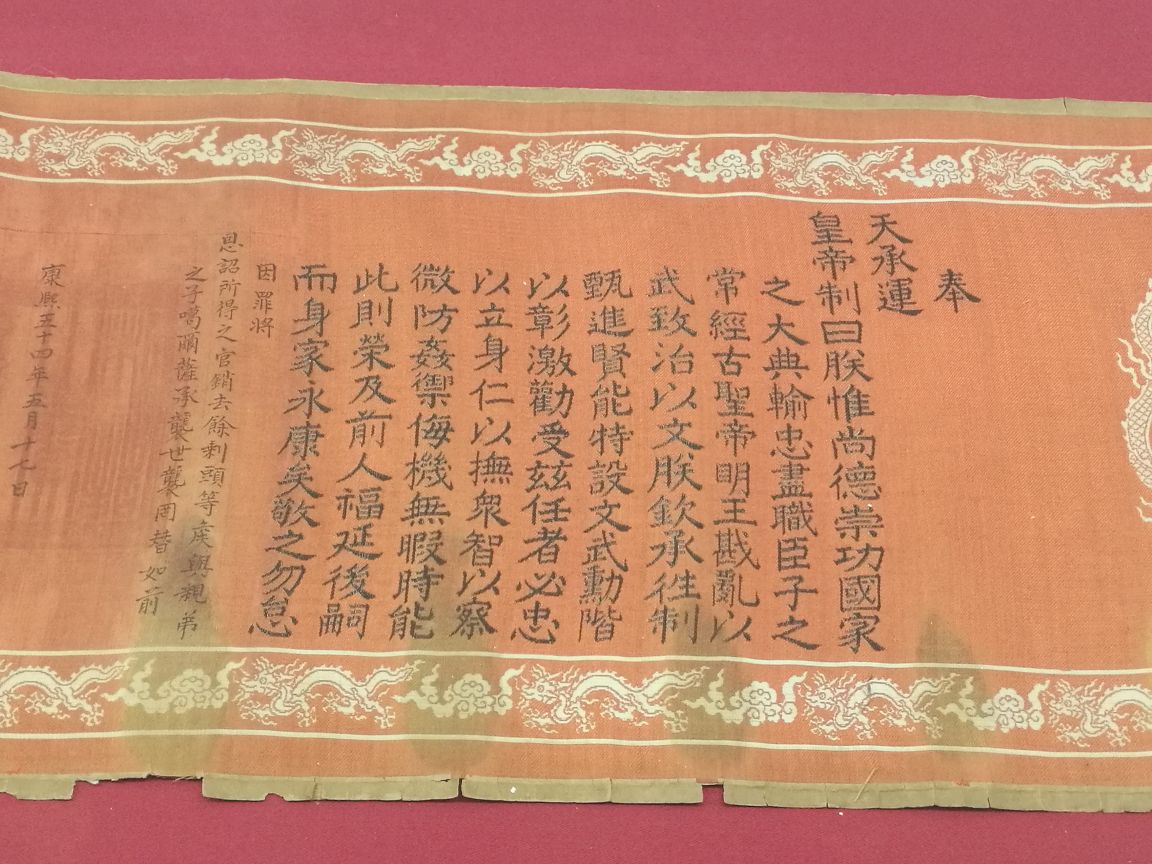 奉
天承運
皇帝制曰朕惟尚德崇功國家
之大典輸忠盡職臣子之
常經古聖帝明王戡亂以
武致治以文朕欽承往制
甄進賢能特設文武勳階
以彰激勸受茲任者必忠
以立身仁以撫衆智以察
微防姦禦侮機無暇時能
此則榮及前人福延後嗣
而身家永康矣敬之勿怠
因罪將
恩詔所得之官銷去餘剩頭等矦與親弟
之子噶爾薩承襲世襲罔替如前
康熙五十四年五月十七日